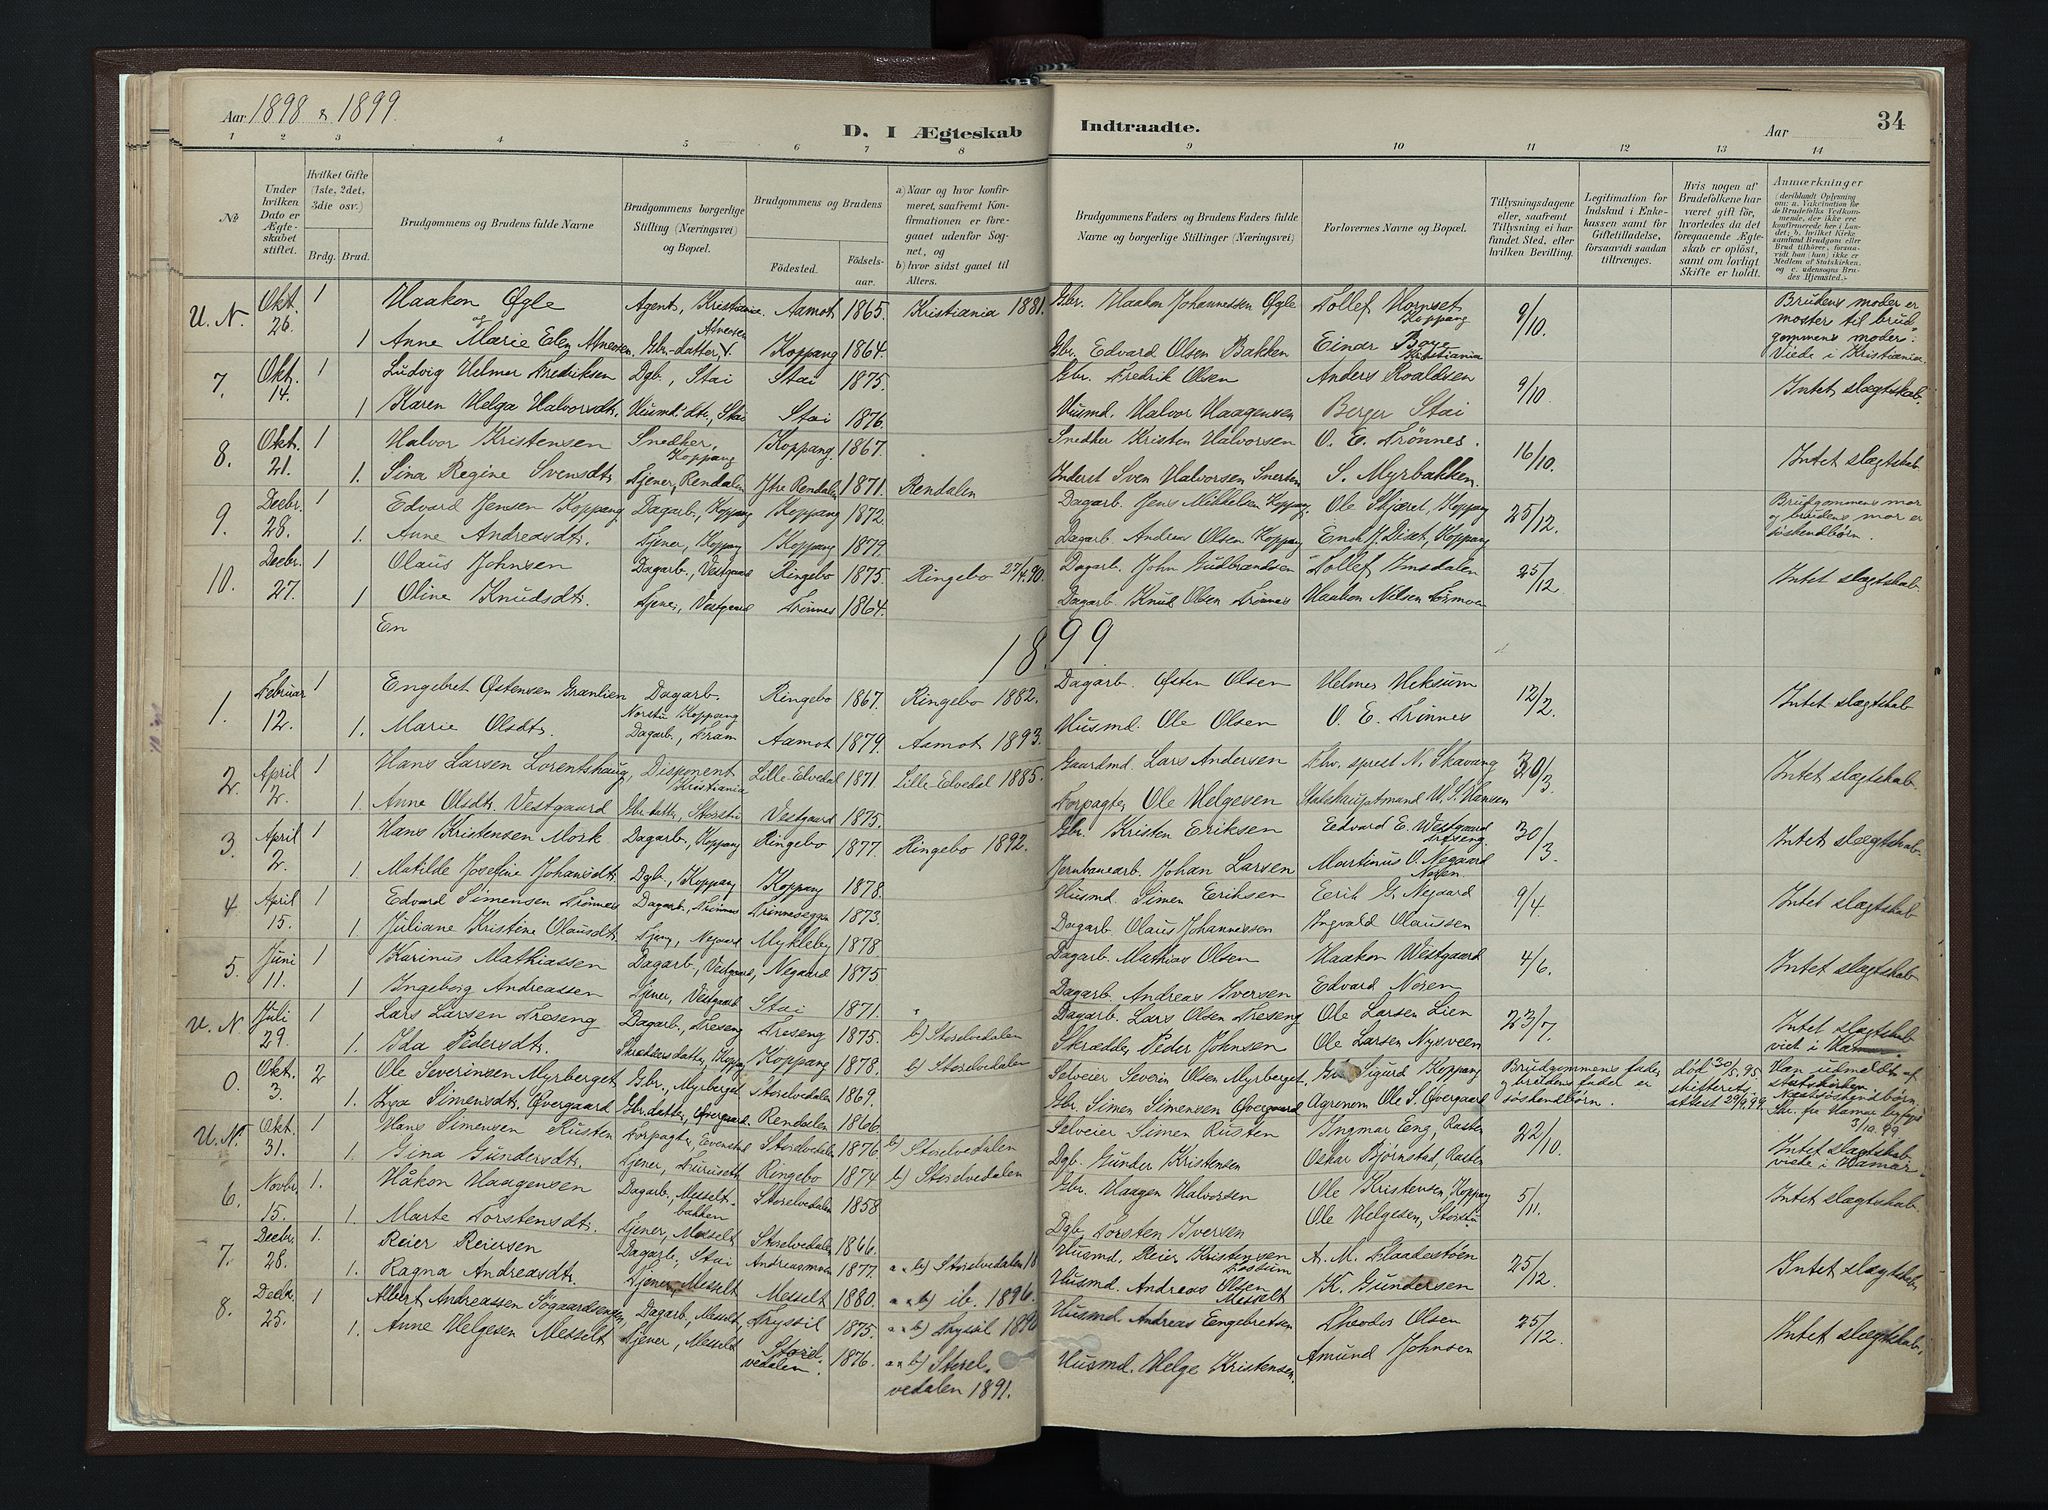 Aar 1898 & 1899.
D. I Ægteskab Indtraadte.
Aar
34
1 2 3 4 5 6 7 8 9 10 11 12 13 14
No
Under hvilken Dato er Ægteskabet stiftet.
Hvilket Gifte (1ste, 2det, 3die osv.)
Brdg. Brud.
Brudgommens og Brudens fulde Navne
Brudgommens borgerlige Stilling (Næringsvei) og Bopæl.
Brudgommens og Brudens
Födested. Födsels-aar.
a) Naar og hvor konfirmeret, saafremt Konfirmationen er foregaaet udenfor Sognet, og
b) hvor sidst gaaet til Alters.
Brudgommens Faders og Brudens Faders fulde Navne og borgerlige Stillinger (Næringsvei)
Forlovernes Navne og Bopæl.
Tillysningsdagene eller, saafremt Tillysning ei har fundet Sted, efter hvilken Bevilling.
Legitimation for Indskud i Enkekassen samt for Giftetilladelse, forsaavidt saadan tiltrænges.
Hvis nogen af Brudefolkene har været gift før, hvorledes da det foregaaende Ægteskab er opløst, samt om lovligt Skifte er holdt.
Anmærkninger
(deriblandt Oplysning om: a. Vakcination for de Brudefolks Vedkommende, der ikke ere konfirmerede her i Landet; b. hvilket Kirkesamfund Brudgom eller Brud tilhører, forsaavidt han (hun) ikke er Medlem af Statskirken, og c. udensogns Brudes Hjemsted.)
U. N. Okt. 26. 1 Haakon Øgle Agent, Kristiania. Aamot 1865. Kristiania 1881. Gbr. Haakon Johannessen Øgle Tollef Hornset Koppang 9/10. Brudens moder er moster til brudgommens moder. Viede i Kristiania
og 1 Anne Marie Elen Alversen. Gbr-datter Koppang 1864. Gbr. Edvard Olsen Bakken Einar Boye Kristiania
7. Okt. 14. 1 Ludvig Helmer Fredriksen Dgb., Stai Stai 1875. Gbr. Fredrik Olsen Anders Roaldsen 9/10. Intet slægtskab.
1 Karen Helga Halvorsdtr. Husmd.dtr, Stai Stai 1876. Husmd. Halvor Haagensen Berger Stai
8. Okt. 21. 1 Halvor Kristensen Snedker, Koppang Koppang. 1867. Snedker Kristen Halvorsen O. E. Trønnes. 16/10. Intet slægtskab
1. Sina Regine Svensdtr. Tjener, Rendalen Ytre Rendalen 1871. Rendalen Inderst Sven Halvorsen S. Myrbakken.
9. Decbr. 28. 1 Edvard Jensen Koppang Dagarb., Koppang Koppang 1872 Dagarb. Jens Mikkelsen Koppang. Ole Skjæret, Koppang 25/12. Brudgommens mor og brudens mor er søskendbörn.
1. Anne Andreasdtr. Tjener, Koppang Koppang 1879. Dagarb. Andreas Olsen Koppang
10. Decbr. 27. 1 Olaus Johnsen Dagarb., Vestgaard Ringebo 1875. Ringebo 27/4.90. Dagarb. John Gudbrandsen Tollef Imsdalen 25/12 Intet slægtskab.
1 Oline Knudsdtr. Tjener, Vestgaard Trönnes 1864. Dagarb. Knud Olsen Trönnes Haakon Nilsen
En
1899
1. Februar 12. 1 Engebret Østensen Grænlien Dagarb. Norstu Koppang Ringebo 1867. Ringebo 1882. Dagarb. Østen Olsen Helmer Heksum 12/2. Intet slægtskab
1. Marie Olsdtr. Dagarb., Fram Aamot 1879. Aamot 1893. Husmd. Ole Olsen O. E. Trönnes
2. April 2. 1 Hans Larsen Lorentshaug, Disponent Kristiania Lille-Elvedal 1871. Lille-Elvedal 1885. Gaardmd. Lars Andersen N. Skavang 30/3. Intet slægtskab.
1. Anne Olsdtr. Vestgaard Gbr.datter, Storstu Vestgaard 1875. Forpagter Ole Helgesen Stadshauptmand W. S. Hansen
3. April 2. 1 Hans Kristensen Mork Dagarb., Koppang Ringebo 1877. Ringebo 1892. Gbr. Kristen Eriksen Eedvard E. Westgaard 30/3 Intet slægtskab.
1 Matilde Josefine Johansdtr. Dgb., Koppang Koppang 1878. Jernbanearb. Johan Larsen Martinus O. Negaard Noren
4. April 15. 1 Edvard Simensen Trönnes Dagarb., Trönnes Trönneseggen 1873. Husmd. Simen Eriksen Eerik G. Negaard 9/4. Intet slægtskab
1. Juliane Kristine Olausdtr. Tjen., Negaard Mykleby 1878 Dagarb. Olaus Johannessen Ingvald Olaussen
5. Juni 11. 1 Karinus Mathiassen Dagarb., Vestgaard, Negaard 1875 Dagarb. Mathias Olsen Haakon Westgaard 4/6. Intet slægtskab
1 Ingeborg Andreassen Tjener, Vestgaard Stai 1871. Dagarb. Andreas Iversen Edvard Noren
U. N. Juli 29. 1 Lars Larsen Treseng Dagarb., Treseng Treseng 1875. b) Storelvedalen Dagarb. Lars Olsen Treseng Ole Larsen Lien 23/7. Intet slægtskab viet i Hamar.
1. Ida Pedersdtr. Skræddersdatter, Koppang Koppang 1878. b) Storelvedalen Skrædder Peder Johnsen Ole Larsen Nysveen
0. Okt. 3. 2 Ole Severinsen Myrberget Gbr., Myrberget Storelvedalen 1869. Selveier Severin Olsen Myrberget. Sigurd Koppang Brudgommens fader og brudens fader er søskendbörn. død 30/5.95 skifteretsattest 29/9.99. Han udmeldt af statskirken. Næstsøskendbørn.
1. Simensdtr. Øvergaard Gbr.datter, Øvergaard Rendalen 1866 Gbr. Simen Simensen Øvergaard Agronom Ole S. Øvergaard 3/10.99.
U. N. Okt. 31. 1 Hans Simensen Rusten Forpagter, Evenstad Storelvedalen 1876 b) Storelvedalen Selveier Simen Rusten Ingmar Eng, Rasten 22/10. Intet slægtskab. viede i Hamar.
1. Gina Gundersdtr. Tjener, Furuseth Ringebo 1874 b) Storelvedalen Dgb. Gunder Kristensen Oskar Bjørnstad, Rasten
6. Novbr. 15. 1. Håkon Haagensen Dagarb., Messeltbakken Storelvedalen 1858 Gbr. Haagen Halvorsen Ole Kristensen, Koppang 5/11. Intet slægtskab.
1. Marte Torstensdtr. Tjener, Messelt Storelvedalen 1866. Dgb. Torsten Iversen Ole Helgesen, Storstu
7. Decbr. 28. 1. Reier Reiersen Dagarb., Stai Andreasmoen 1877. a & b) Storelvedalen 18 Husmd. Reier Kristensen A. M. Haadestøen 25/12. Intet slægtskab,
1. Ragna Andreasdtr. Tjener, Messelt Messelt 1880. a & b) ib. 1896. Husmd. Andreas Olsen Messelt K. Gundersen
8. Decbr. 25. 1 Albert Andreassen Søgaardsengen, Dagarb., Messelt, Trysil 1875. a & b) Trysil 1890 Husmd. Andreas Eengebretsen Theodor Olsen 25/12. Intet slægtskab,
1. Anne Helgesen Messelt Tjener, Messelt Storelvedalen. 1876. a & b) Storelvedalen 1891. Husmd. Helge Kristensen. Amund Johnsen